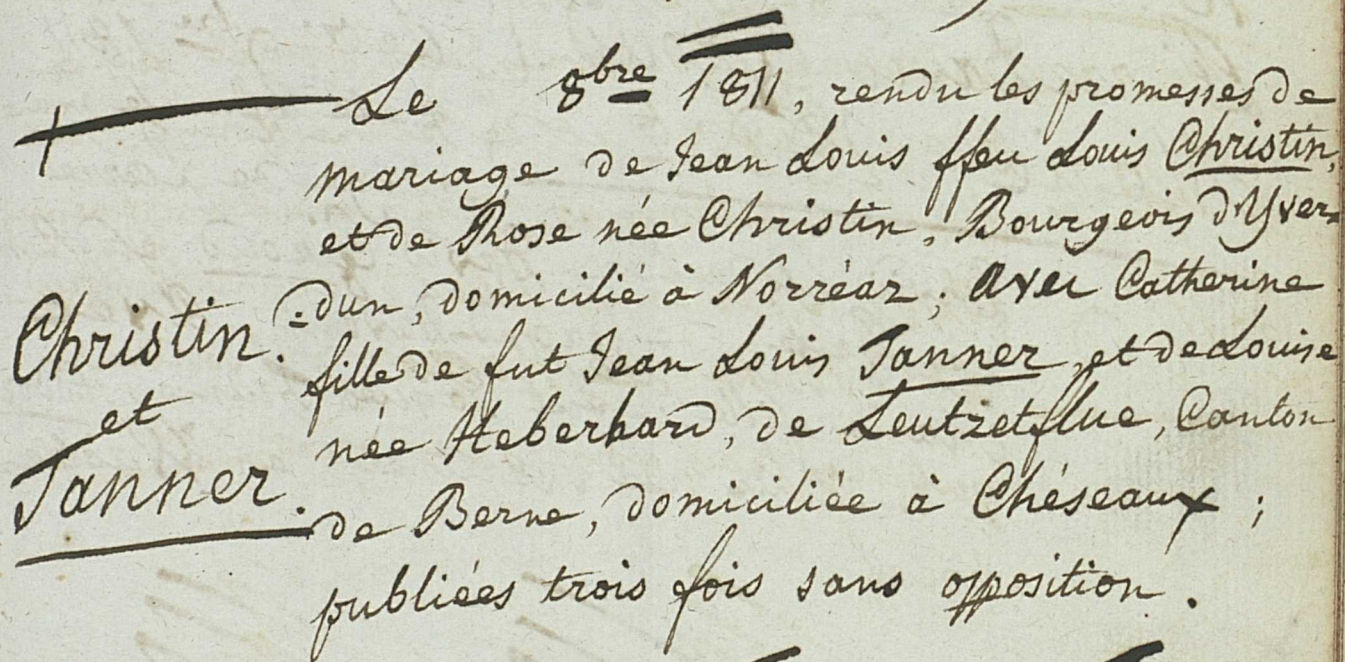 Le 8bre 1811, rendu les promesses de
mariage de Jean Louis ffeu Louis Christin,
et de Rose née Christin, Bourgeois d'Yver=
=dun, domicilié à Norréaz ; avec Catherine
fille de fut Jean Louis Tanner et de Louise
née Heberhard, de Leutzetflue, Canton
de Berne, domiciliée à Chéseaux ;
publiées trois fois sans opposition.
Christin.
et
Tanner.